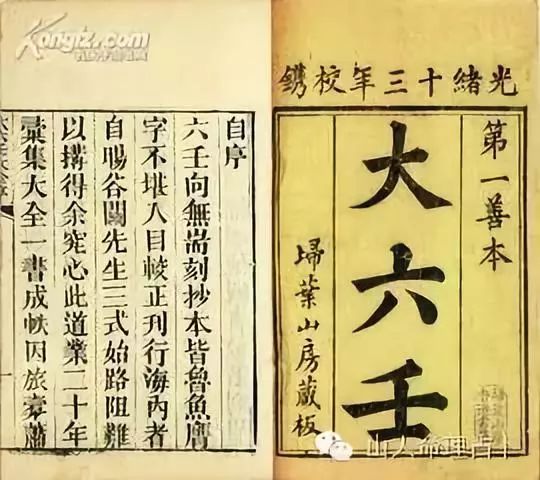 光緒十三年校鐫
第一善本
大六壬
埽葉山房藏板
自序
六壬向無耑刻抄本皆魯魚膺
字不堪入目較正刊行海內者
自暘谷關先生三式始路阻難
以搆得余究心此道業二十年
彙集大全一書成帙因旅橐蕭
Kongfz.com
山人命理占卜